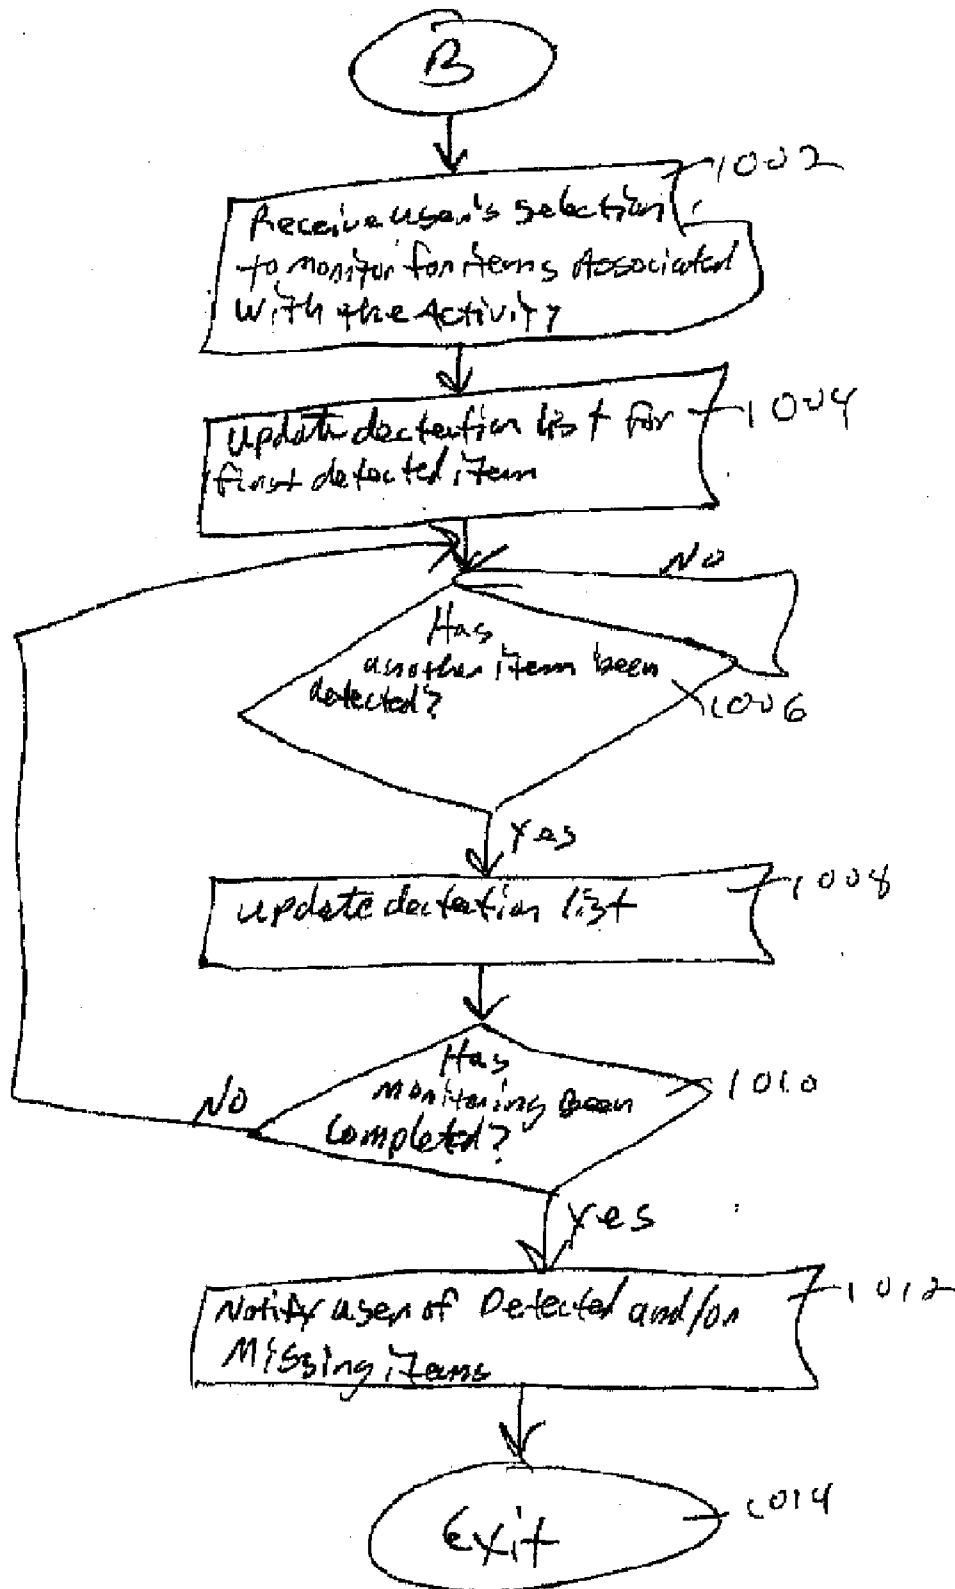 B
1002
Receive user's selection
to monitor for items Associated
With the Activity
1004
Update dectection list for
first detected item
No
Has
another item been
detected?
1006
Yes
1008
update dectection list
Has
monitoring Been
Completed?
1010
No
Yes
1012
Notify user of Detected and/or
Missing items
Exit
1014